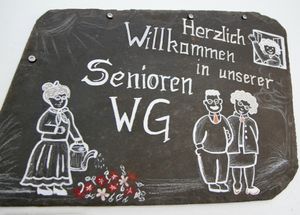 Herzlich
Willkammen
in unserer
Senioren
WG